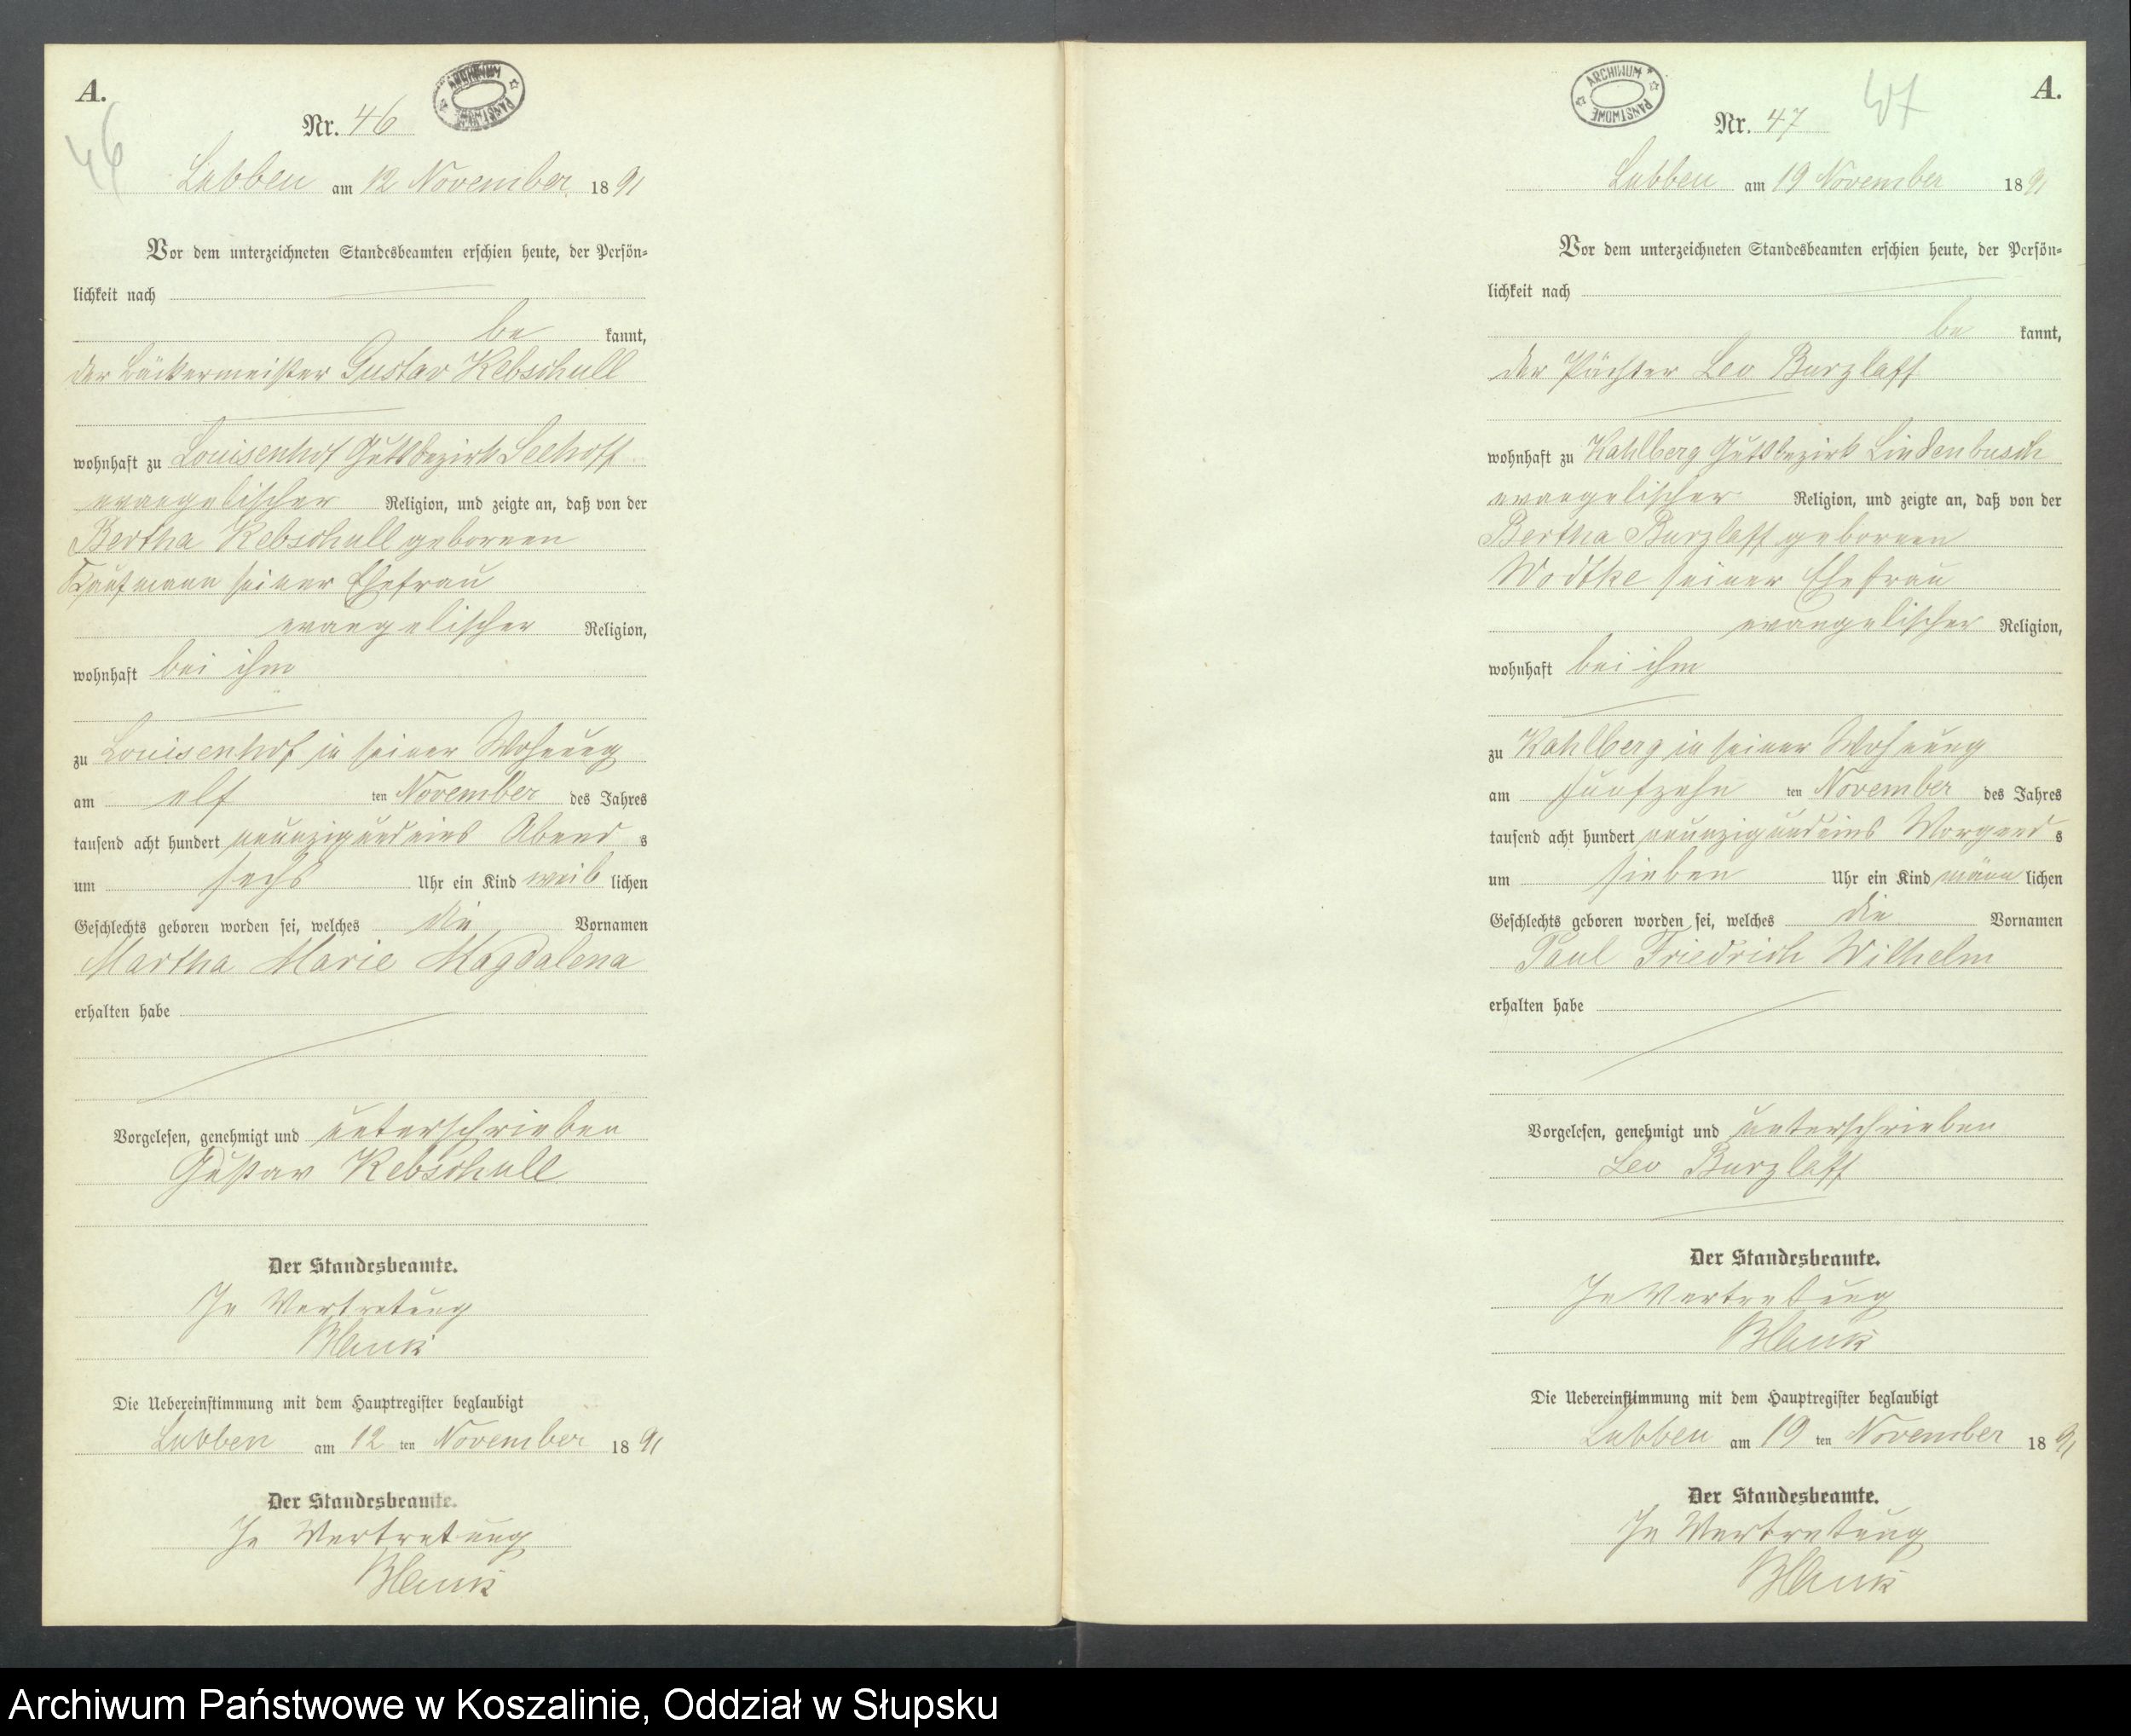 A.
46
Nr. 46
ARCHIWUM PAŃSTWOWE
Lubben am 12 November 1891
Vor dem unterzeichneten Standesbeamten erschien heute, der Persön-
lichkeit nach
be kannt,
der Bäckermeister Gustav Kebschull
wohnhaft zu Louisenhof Gutsbezirk Seehoff
evangelischer Religion, und zeigte an, daß von der
Bertha Kebschull geborenen
Kaufmann seiner Ehefrau
evangelischer Religion,
wohnhaft bei ihm
zu Louisenhof in seiner Wohnung
am elf ten November des Jahres
tausend acht hundert neunzig und eins Abend s
um sechs Uhr ein Kind weib lichen
Geschlechts geboren worden sei, welches die Vornamen
Martha Marie Magdalena
erhalten habe
Vorgelesen, genehmigt und unterschrieben
Gustav Kebschull
Der Standesbeamte.
In Vertretung
Die Uebereinstimmung mit dem Hauptregister beglaubigt
Lubben am 12 ten November 1891
Der Standesbeamte.
In Vertretung
A.
47
Nr. 47
ARCHIWUM PAŃSTWOWE
Lubben am 19 November 1891
Vor dem unterzeichneten Standesbeamten erschien heute, der Persön-
lichkeit nach
be kannt,
der Pächter Leo Burzlaff
wohnhaft zu Kahlberg Gutsbezirk Lindenbusch
evangelischer Religion, und zeigte an, daß von der
Bertha Burzlaff geborenen
Wodtke seiner Ehefrau
evangelischer Religion,
wohnhaft bei ihm
zu Kahlberg in seiner Wohnung
am fünfzehn ten November des Jahres
tausend acht hundert neunzig und eins Morgend s
um sieben Uhr ein Kind männ lichen
Geschlechts geboren worden sei, welches die Vornamen
Paul Friedrich Wilhelm
erhalten habe
Vorgelesen, genehmigt und unterschrieben
Leo Burzlaff
Der Standesbeamte.
In Vertretung
Die Uebereinstimmung mit dem Hauptregister beglaubigt
Lubben am 19 ten November 1891
Der Standesbeamte.
In Vertretung
Archiwum Państwowe w Koszalinie, Oddział w Słupsku